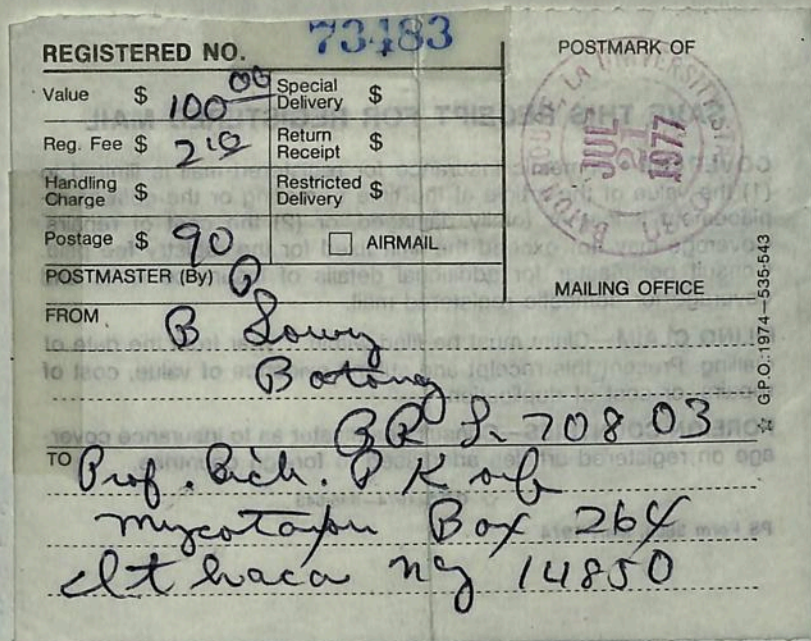 REGISTERED NO. 73483
POSTMARK OF
Value $ 100 00
Special Delivery $
Reg. Fee $ 2 10
Return Receipt $
Handling Charge $
Restricted Delivery $
Postage $ 90
AIRMAIL
POSTMASTER (By)
MAILING OFFICE
BATON ROUGE LA UNIVERSITY STA
JUL
21
1977
FROM B Lowy
Botany
BR La 70803
TO Prof. Rich. P Korf
Mycotaxon Box 264
Ithaca NY 14850
☆ G.P.O.: 1974-535-543